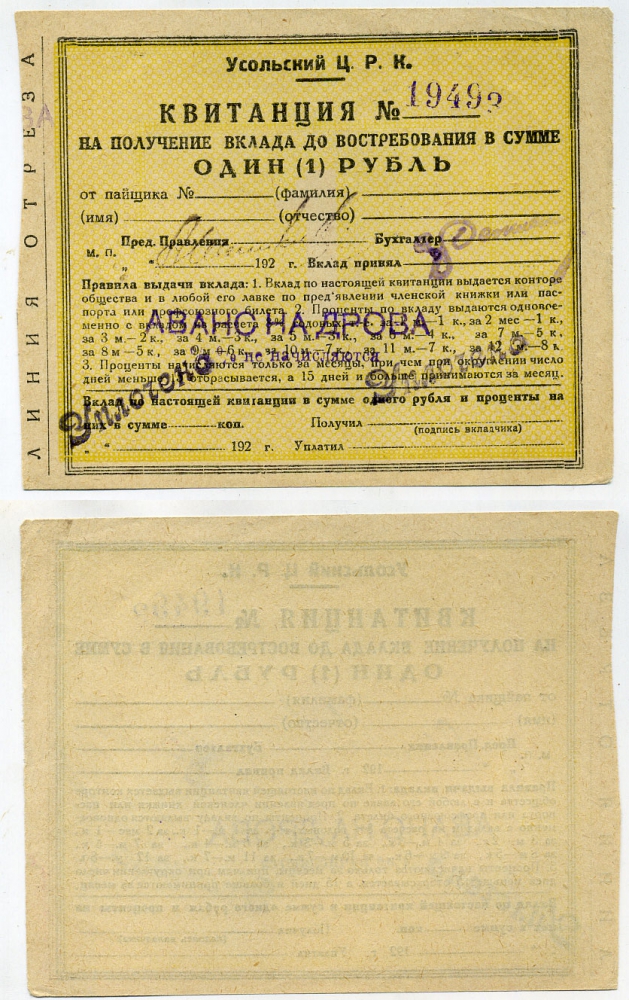 Усольский Ц. Р. К.
КВИТАНЦИЯ № 19493
НА ПОЛУЧЕНИЕ ВКЛАДА ДО ВОСТРЕБОВАНИЯ В СУММЕ
ОДИН (1) РУБЛЬ
от пайщика № (фамилия)
(имя) (отчество)
Пред. Правления Бухгалтер
м. п.
„ “ 192 г. Вклад принял
Правила выдачи вклада: 1. Вклад по настоящей квитанции выдается конторе
общества и в любой его лавке по пред'явлении членской книжки или пас-
порта или профсоюзного билета 2. Проценты по вкладу выдаются одновре-
менно с 1 к., за 2 мес—1 к.,
за 3 м.—2к., за 4 м.—3к., за 5 м. за 7 м.—5 к.,
за 8 м—5 к., за 10 м—7 за 11 м.—7 к., за 12 м.—8 к.
АВАНС НА ДРОВА
% не начисляются
3. Проценты начисляются только за месяцы, при чем при округлении число
дней меньше отбрасывается, а 15 дней и больше принимаются за месяц.
Уплочено
Уплочено
Вклад по настоящей квитанции в сумме одного рубля и проценты на
них в сумме коп. Получил
(подпись вкладчика)
„ “ 192 г. Уплатил
ЛИНИЯ ОТРЕЗА